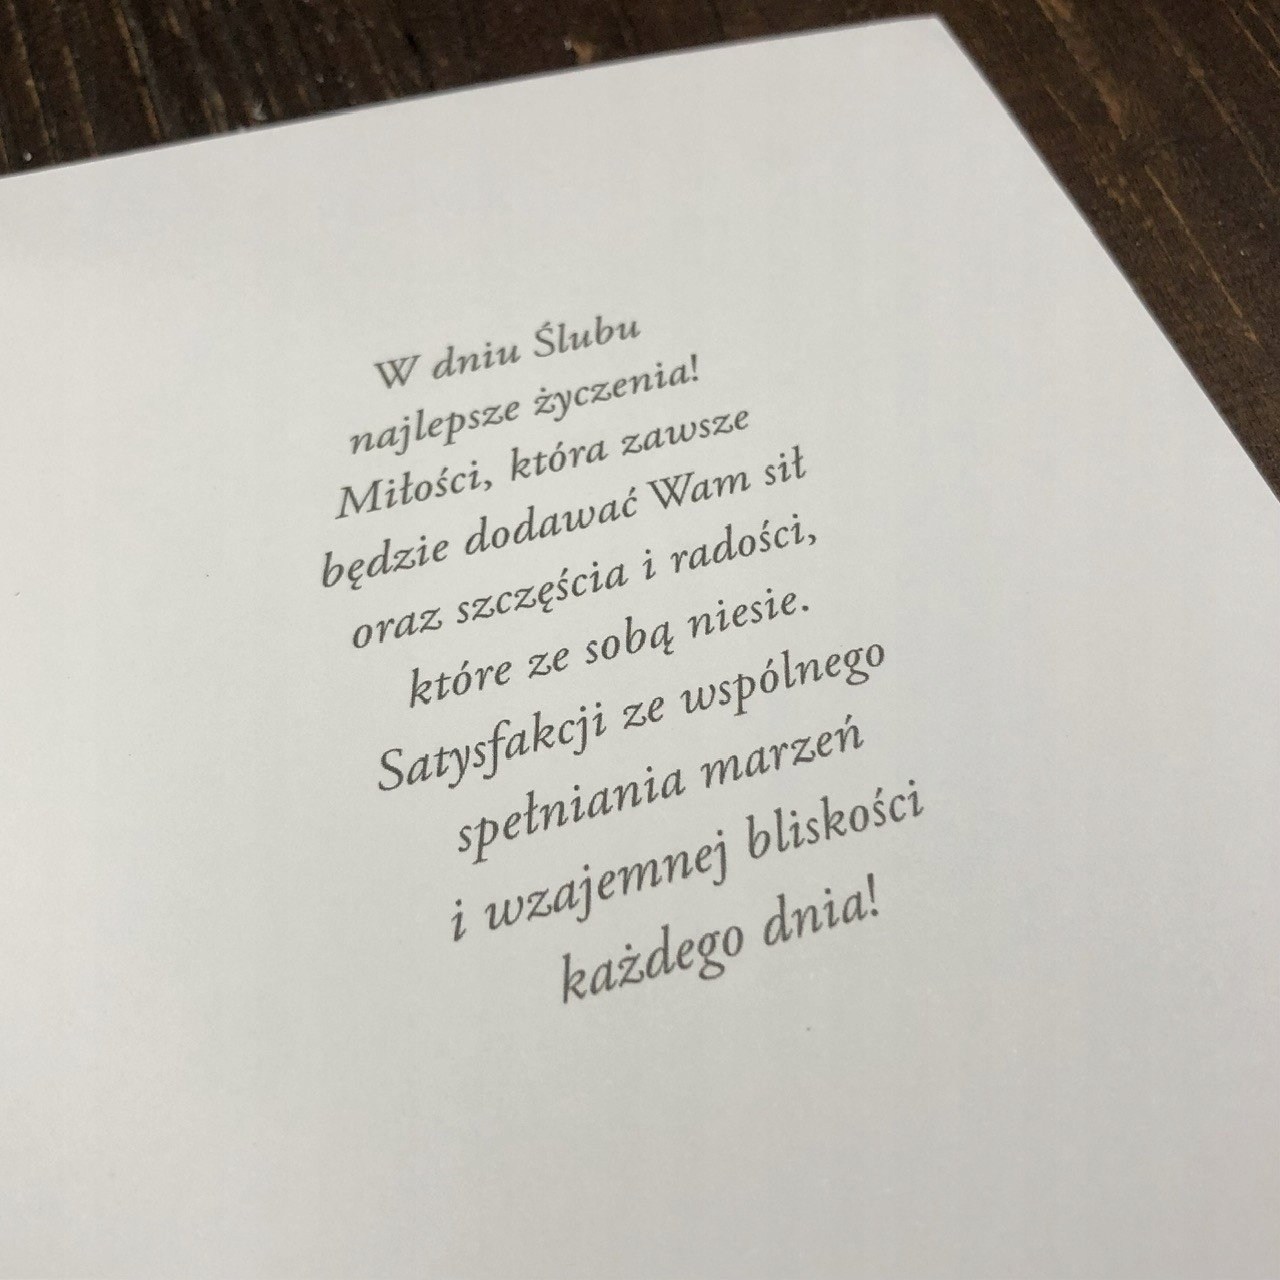 W dniu Ślubu
najlepsze życzenia!
Miłości, która zawsze
będzie dodawać Wam sił
oraz szczęścia i radości,
które ze sobą niesie.
Satysfakcji ze wspólnego
spełniania marzeń
i wzajemnej bliskości
każdego dnia!